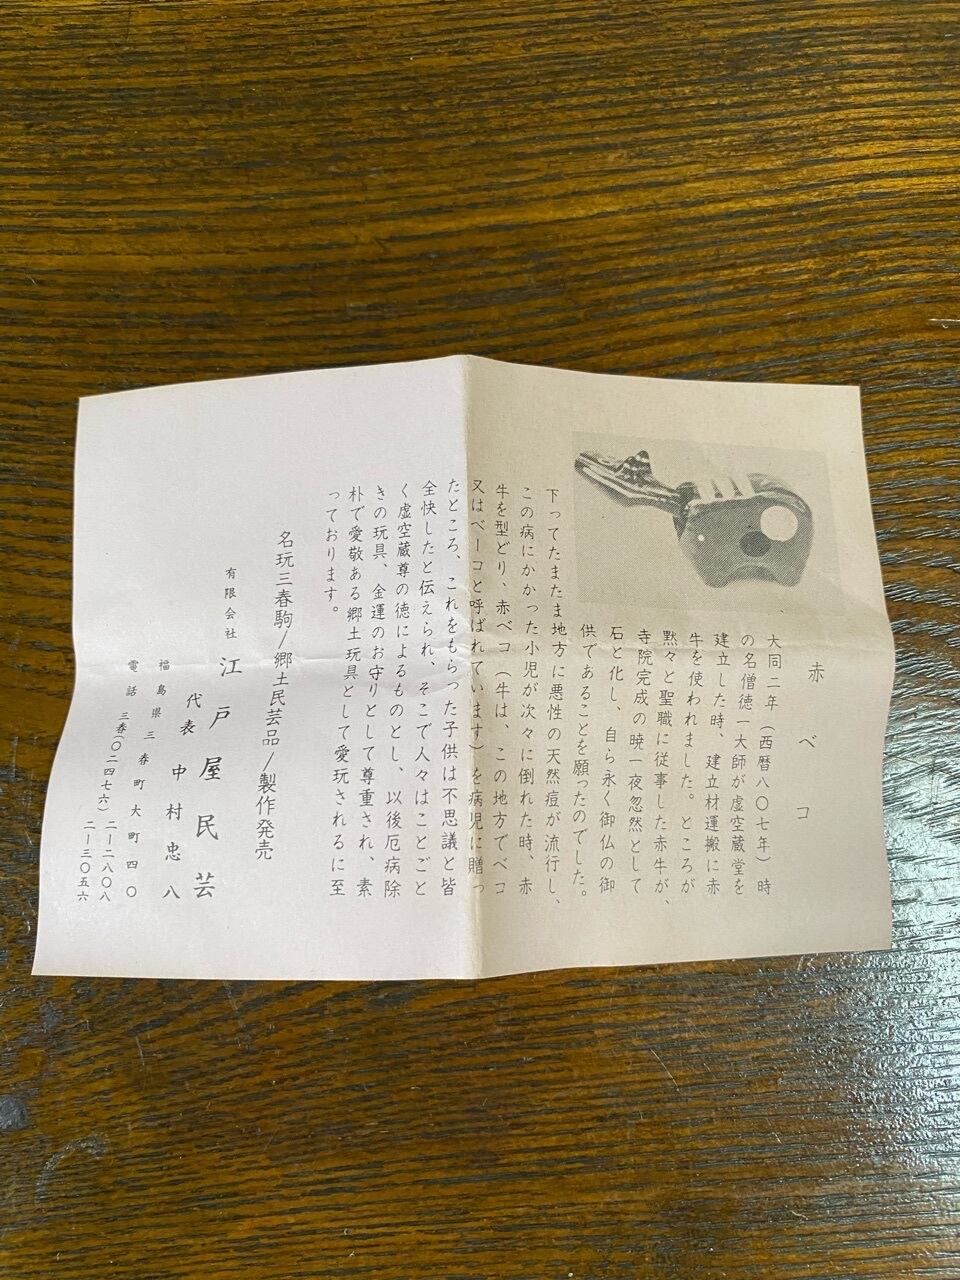 赤ベコ
大同二年（西暦八〇七年）時
の名僧徳一大師が虚空蔵堂を
建立した時、建立材運搬に赤
牛を使われました。ところが
黙々と聖職に従事した赤牛が、
寺院完成の暁一夜忽然として
石と化し、自ら永く御仏の御
供であることを願ったのでした。
下ってたまたま地方に悪性の天然痘が流行し、
この病にかかった小児が次々に倒れた時、赤
牛を型どり、赤ベコ（牛は、この地方でベコ
又はベーコと呼ばれています）を病児に贈っ
たところ、これをもらった子供は不思議と皆
全快したと伝えられ、そこで人々はことごと
く虚空蔵尊の徳によるものとし、以後厄病除
きの玩具、金運のお守りとして尊重され、素
朴で愛敬ある郷土玩具として愛玩されるに至
っております。
名玩三春駒/郷土民芸品/製作発売
有限会社 江戸屋民芸
代表 中村忠八
福島県三春町大町四〇
電話 三春(〇二四七六) 二-二八〇八
二-三〇五六